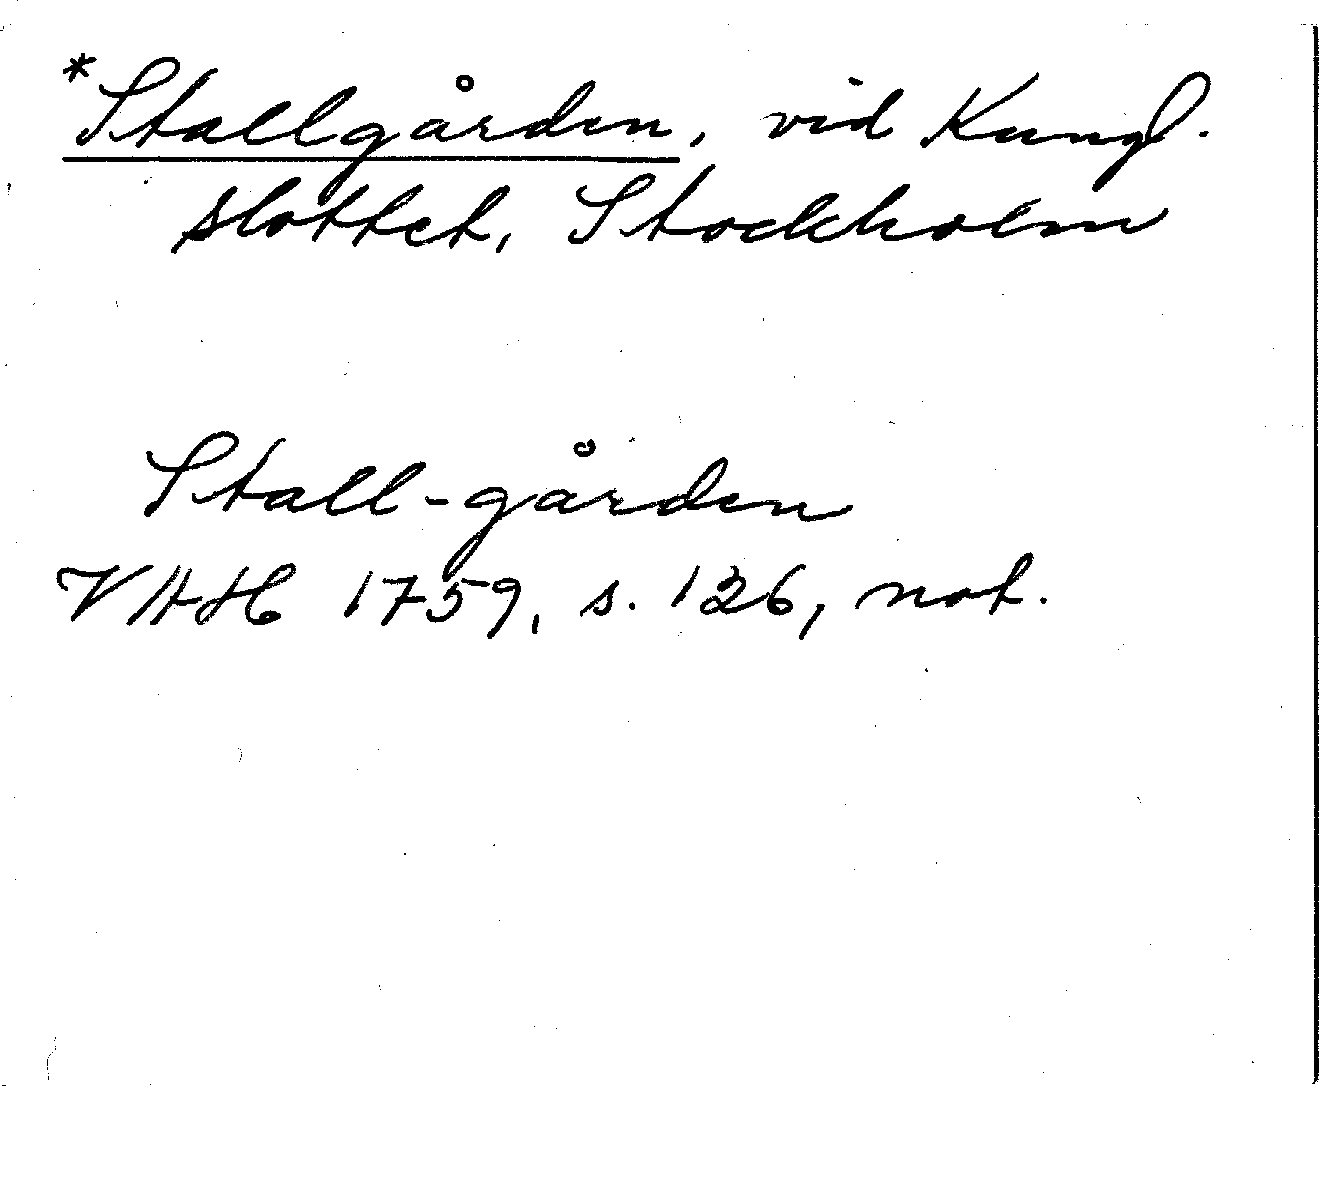 *Stallgården, vid Kungl.
slottet, Stockholm
Stall-gården
VAH 1759, s. 126, not.